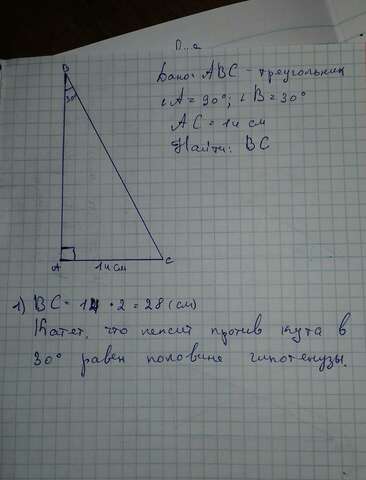 П...а
B
Дано: ABC - треугольник
30°
∠A = 90°; ∠B = 30°
AC = 14 см
Найти: BC
A
14 см
C
1) BC = 14 · 2 = 28 (см)
Катет, что лежит против кута в
30° равен половине гипотенузы.